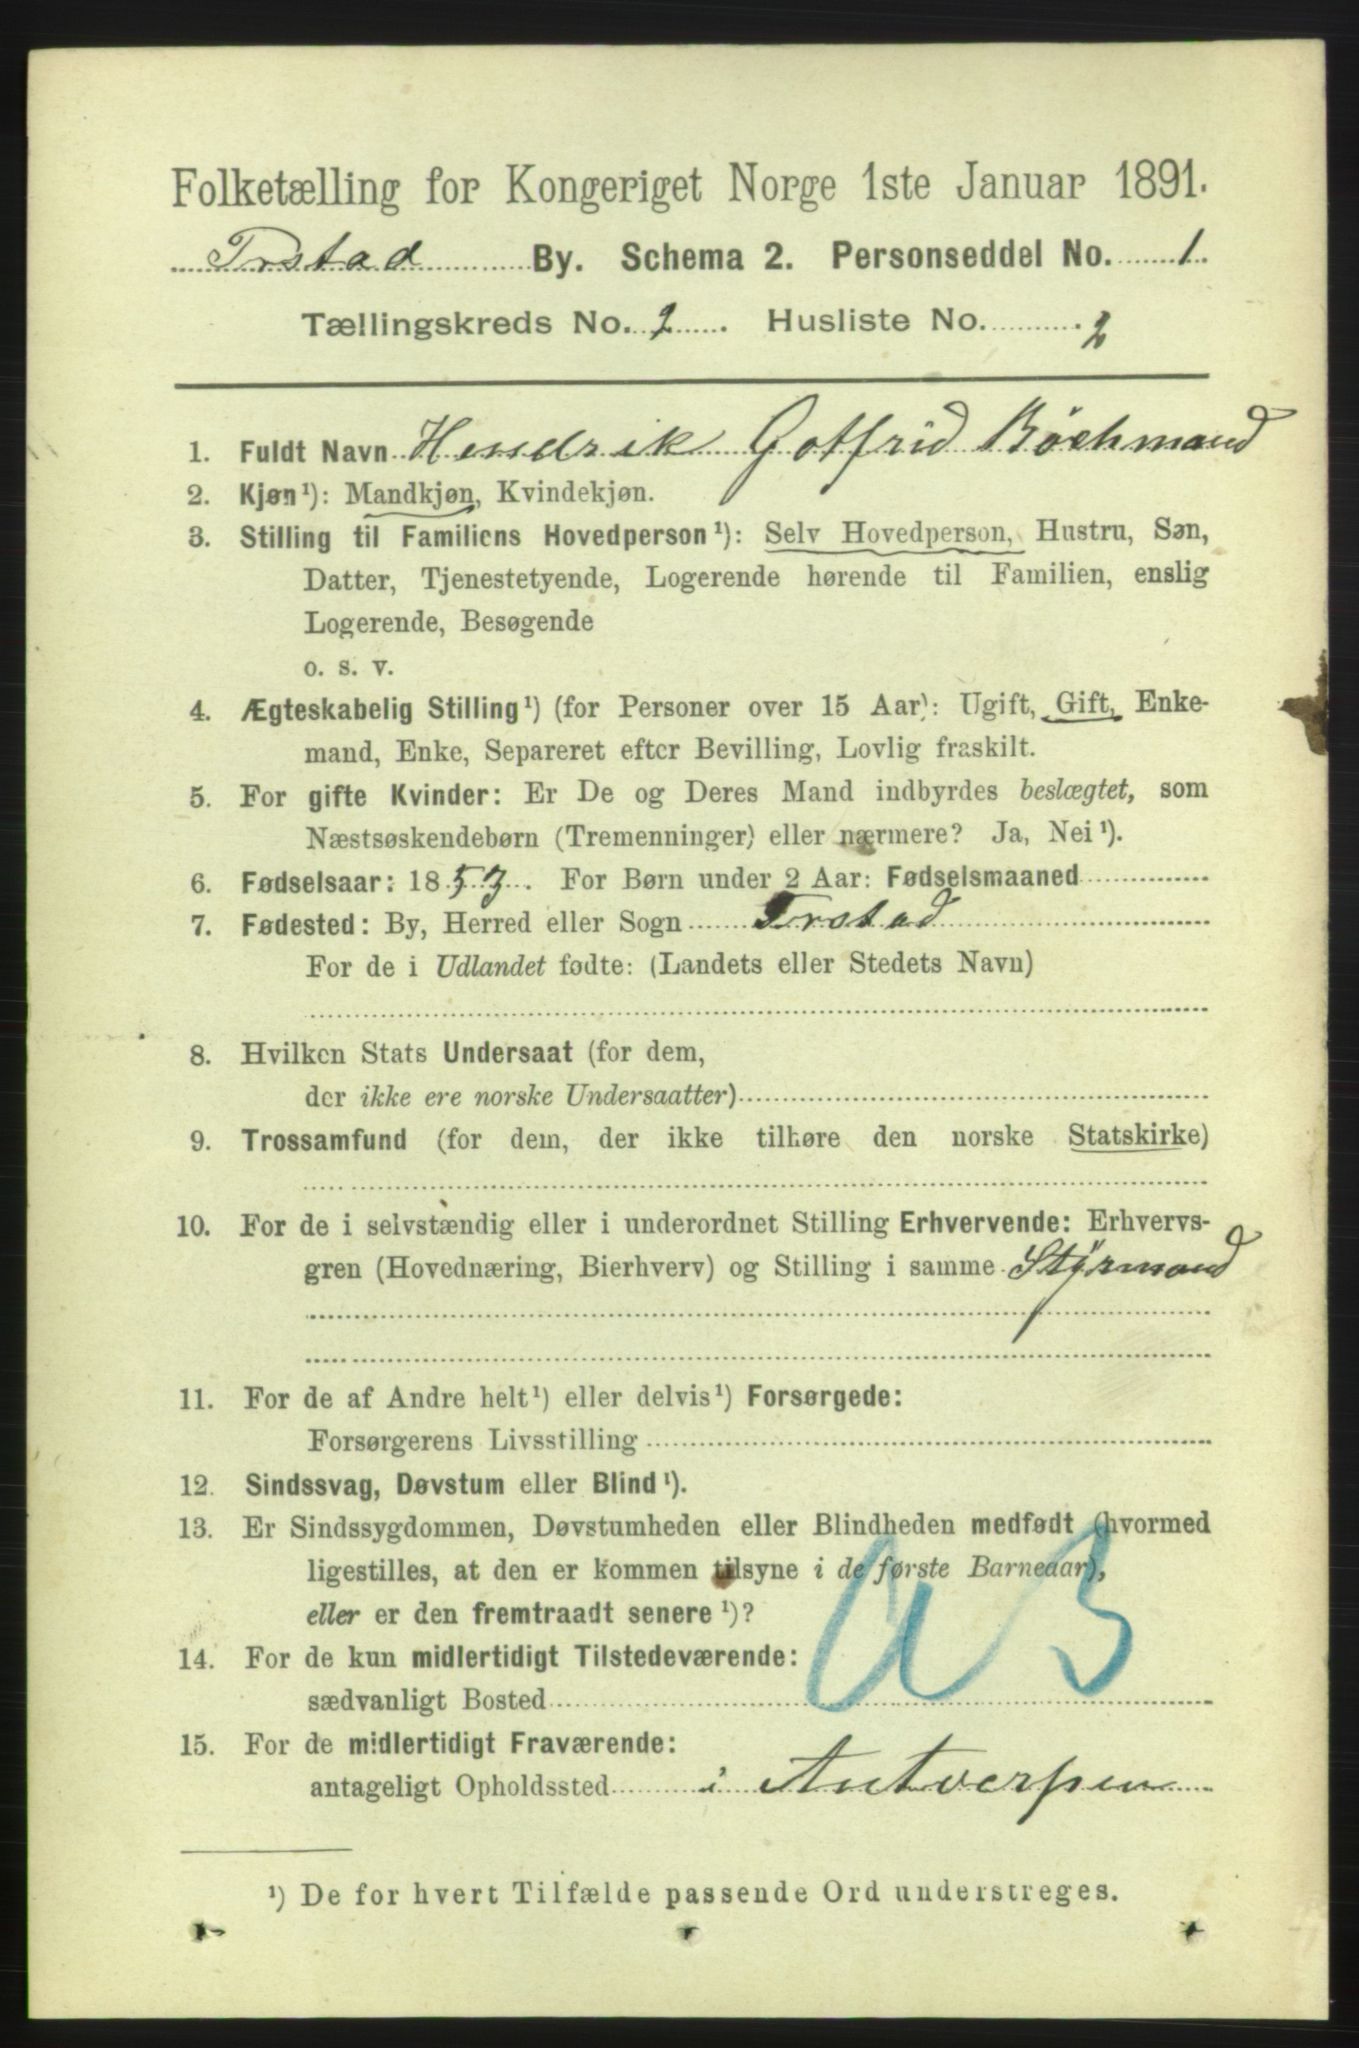 Folketælling for Kongeriget Norge 1ste Januar 1891.
Frstad By. Schema 2. Personseddel No. 1
Tællingskreds No. 2. Husliste No. 2
1. Fuldt Navn Hendrik Gotfrid Böchmand
2. Kjøn¹): Mandkjøn, Kvindekjøn.
3. Stilling til Familiens Hovedperson¹): Selv Hovedperson, Hustru, Søn,
Datter, Tjenestetyende, Logerende hørende til Familien, enslig
Logerende, Besøgende
o. s. v.
4. Ægteskabelig Stilling¹) (for Personer over 15 Aar): Ugift, Gift, Enke-
mand, Enke, Separeret efter Bevilling, Lovlig fraskilt.
5. For gifte Kvinder: Er De og Deres Mand indbyrdes beslægtet, som
Næstsøskendebørn (Tremenninger) eller nærmere? Ja, Nei¹).
6. Fødselsaar: 1853. For Børn under 2 Aar: Fødselsmaaned
7. Fødested: By, Herred eller Sogn Frstad
For de i Udlandet fødte: (Landets eller Stedets Navn)
8. Hvilken Stats Undersaat (for dem,
der ikke ere norske Undersaatter)
9. Trossamfund (for dem, der ikke tilhøre den norske Statskirke)
10. For de i selvstændig eller i underordnet Stilling Erhvervende: Erhvervs-
gren (Hovednæring, Bierhverv) og Stilling i samme Stÿrmand
11. For de af Andre helt¹) eller delvis¹) Forsørgede:
Forsørgerens Livsstilling
12. Sindssvag, Døvstum eller Blind¹).
13. Er Sindssygdommen, Døvstumheden eller Blindheden medfødt (hvormed
ligestilles, at den er kommen tilsyne i de første Barneaar),
eller er den fremtraadt senere¹)?
14. For de kun midlertidigt Tilstedeværende:
sædvanligt Bosted
15. For de midlertidigt Fraværende:
antageligt Opholdssted i Antverpen
¹) De for hvert Tilfælde passende Ord understreges.